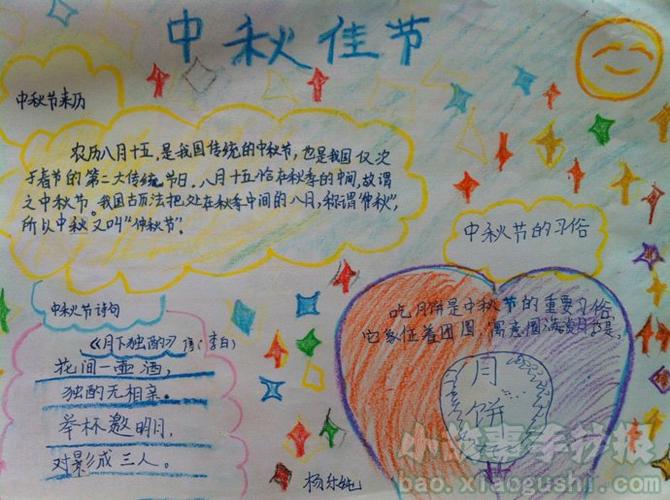 中秋佳节
中秋节来历
农历八月十五，是我国传统的中秋节，也是我国仅次
于春节的第二大传统节日。八月十五恰在秋季的中间，故谓
之中秋节。我国古历法把处在秋季中间的八月，称谓“仲秋”，
所以中秋又叫“仲秋节”。
中秋节的习俗
吃月饼是中秋节的重要习俗，
它象征着团圆，寓意圆满
月
饼
中秋节诗句
《月下独酌》 唐（李白）
花间一壶酒，
独酌无相亲。
举杯邀明月，
对影成三人。
杨乐
bao.xiaogushi.com